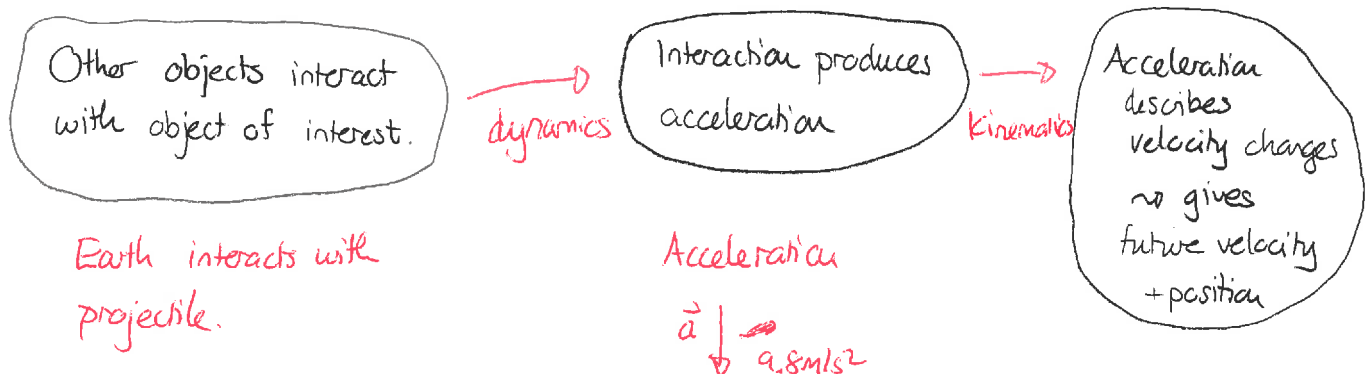 Other objects interact
with object of interest.
dynamics
Interaction produces
acceleration
kinematics
Acceleration
describes
velocity changes
⇝ gives
future velocity
+ position
Earth interacts with
projectile.
Acceleration
a⃗
9.8m/s²